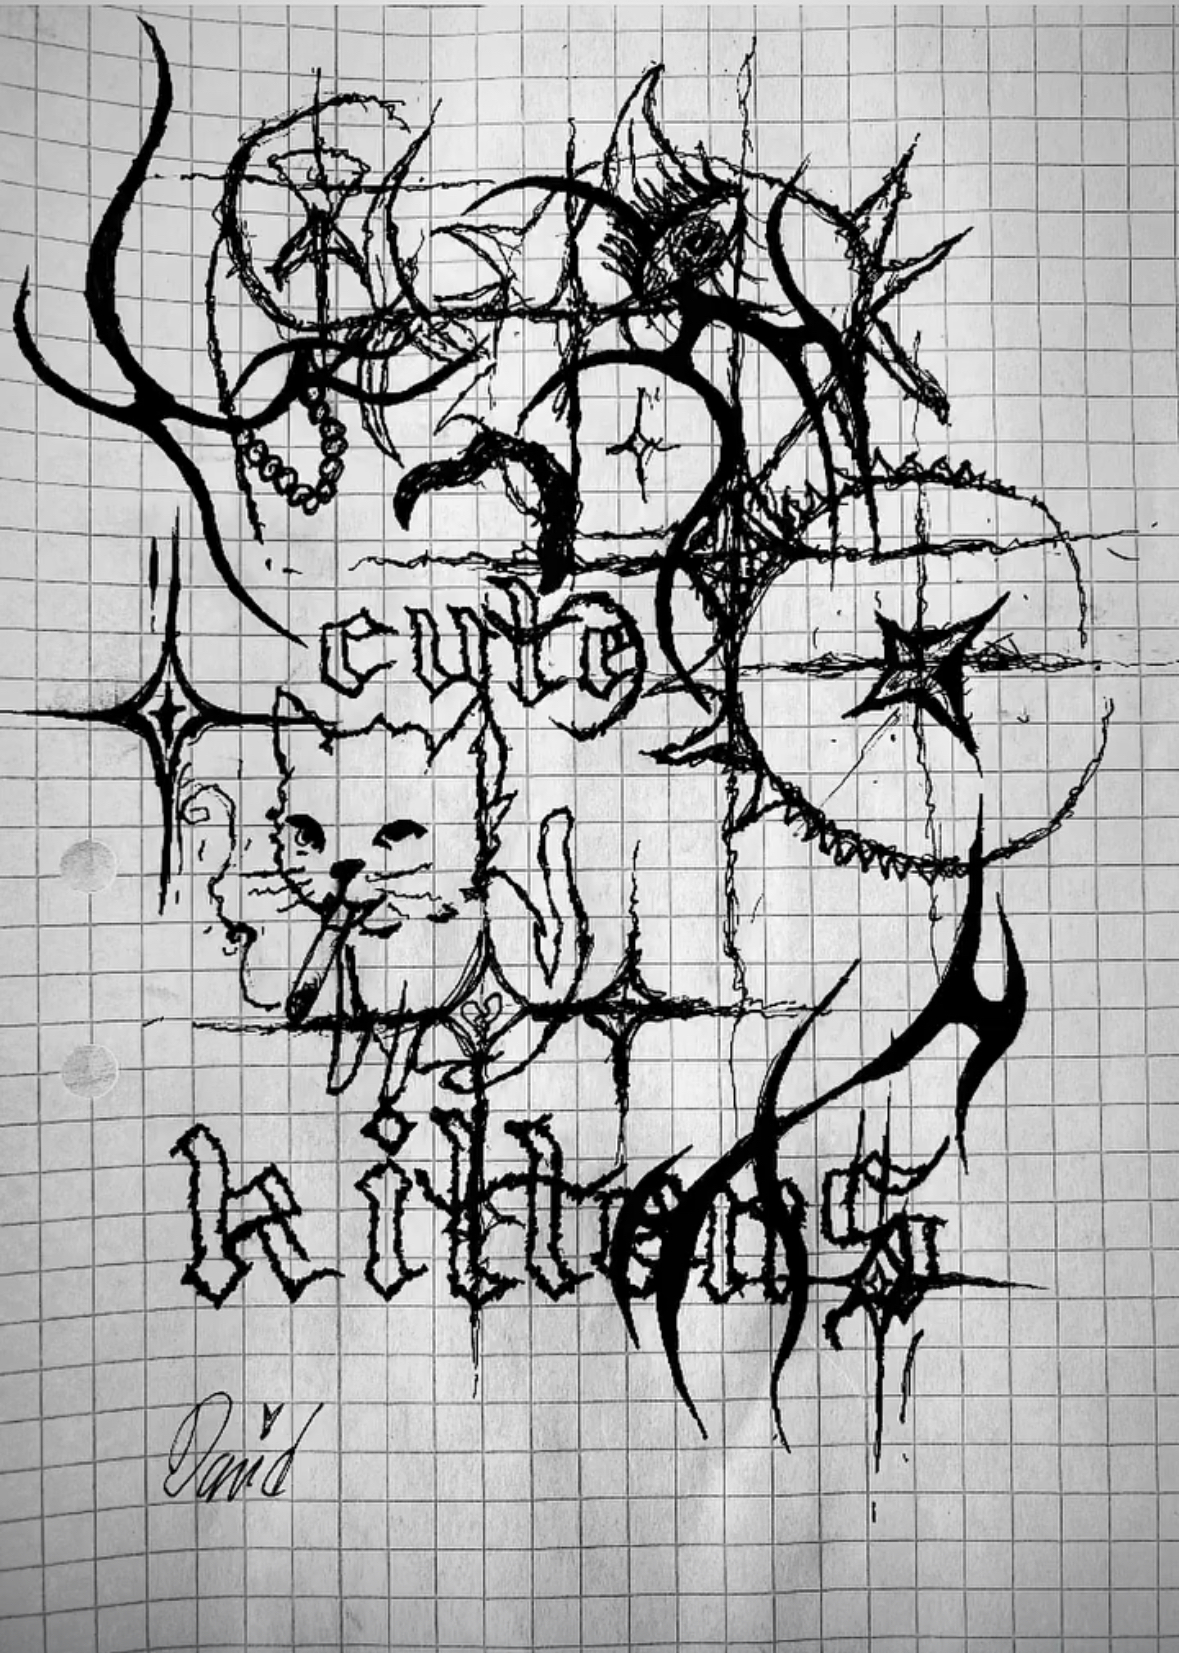 cute
kittens
David